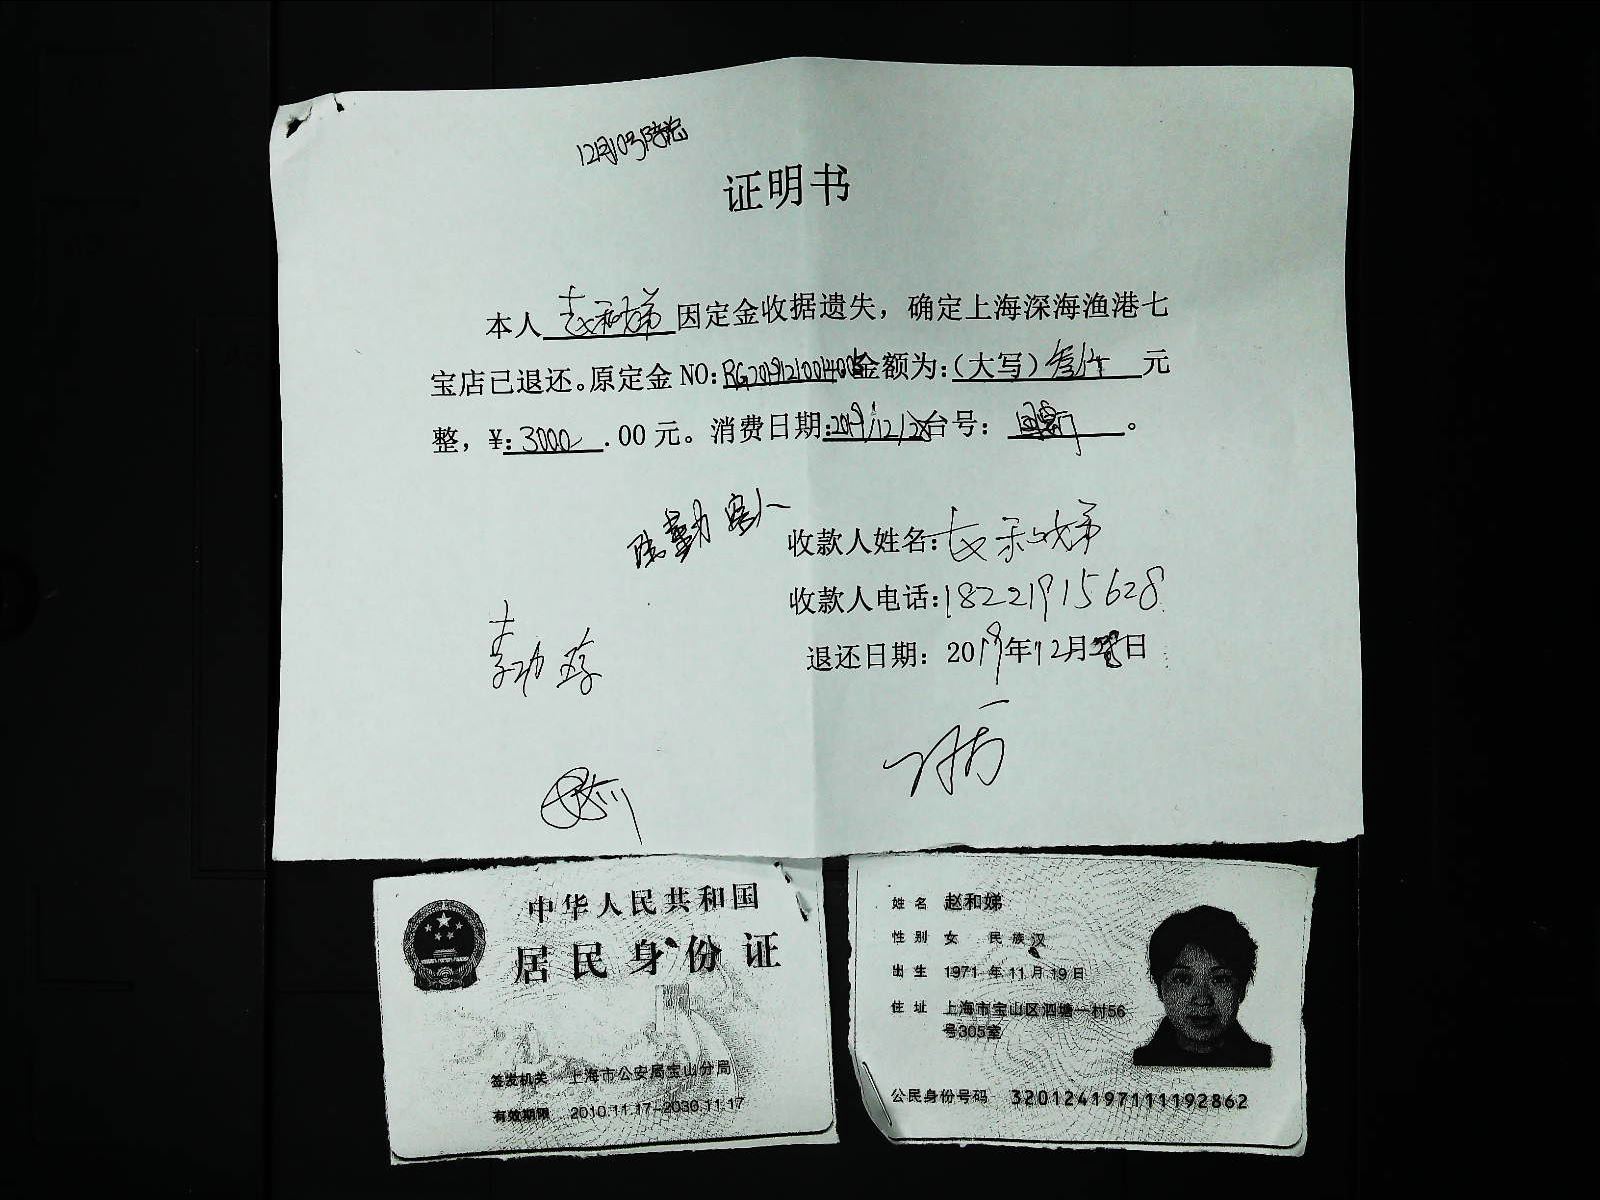 12月10号
证明书
本人 赵和娣 因定金收据遗失，确定上海深海渔港七
宝店已退还。原定金 NO: RG20191210014005 金额为:（大写）叁仟 元
整，¥: 3000 .00 元。消费日期: 2019/12/28 台号：
客人
收款人姓名: 赵和娣
收款人电话: 18221915628
退还日期：2019年12月28日
中华人民共和国
居民身份证
签发机关 上海市公安局宝山分局
有效期限 2010.11.17-2030.11.17
姓名 赵和娣
性别 女 民族 汉
出生 1971 年 11 月 19 日
住址 上海市宝山区泗塘一村56
号305室
公民身份号码 320124197111192862